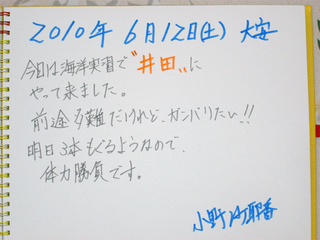 2010年 6月12日(土) 大安
今日は海洋実習で"井田"に
やって来ました。
前途多難だけれど、ガンバりたい!!
明日3本もぐるようなので、
体力勝負です。
小野